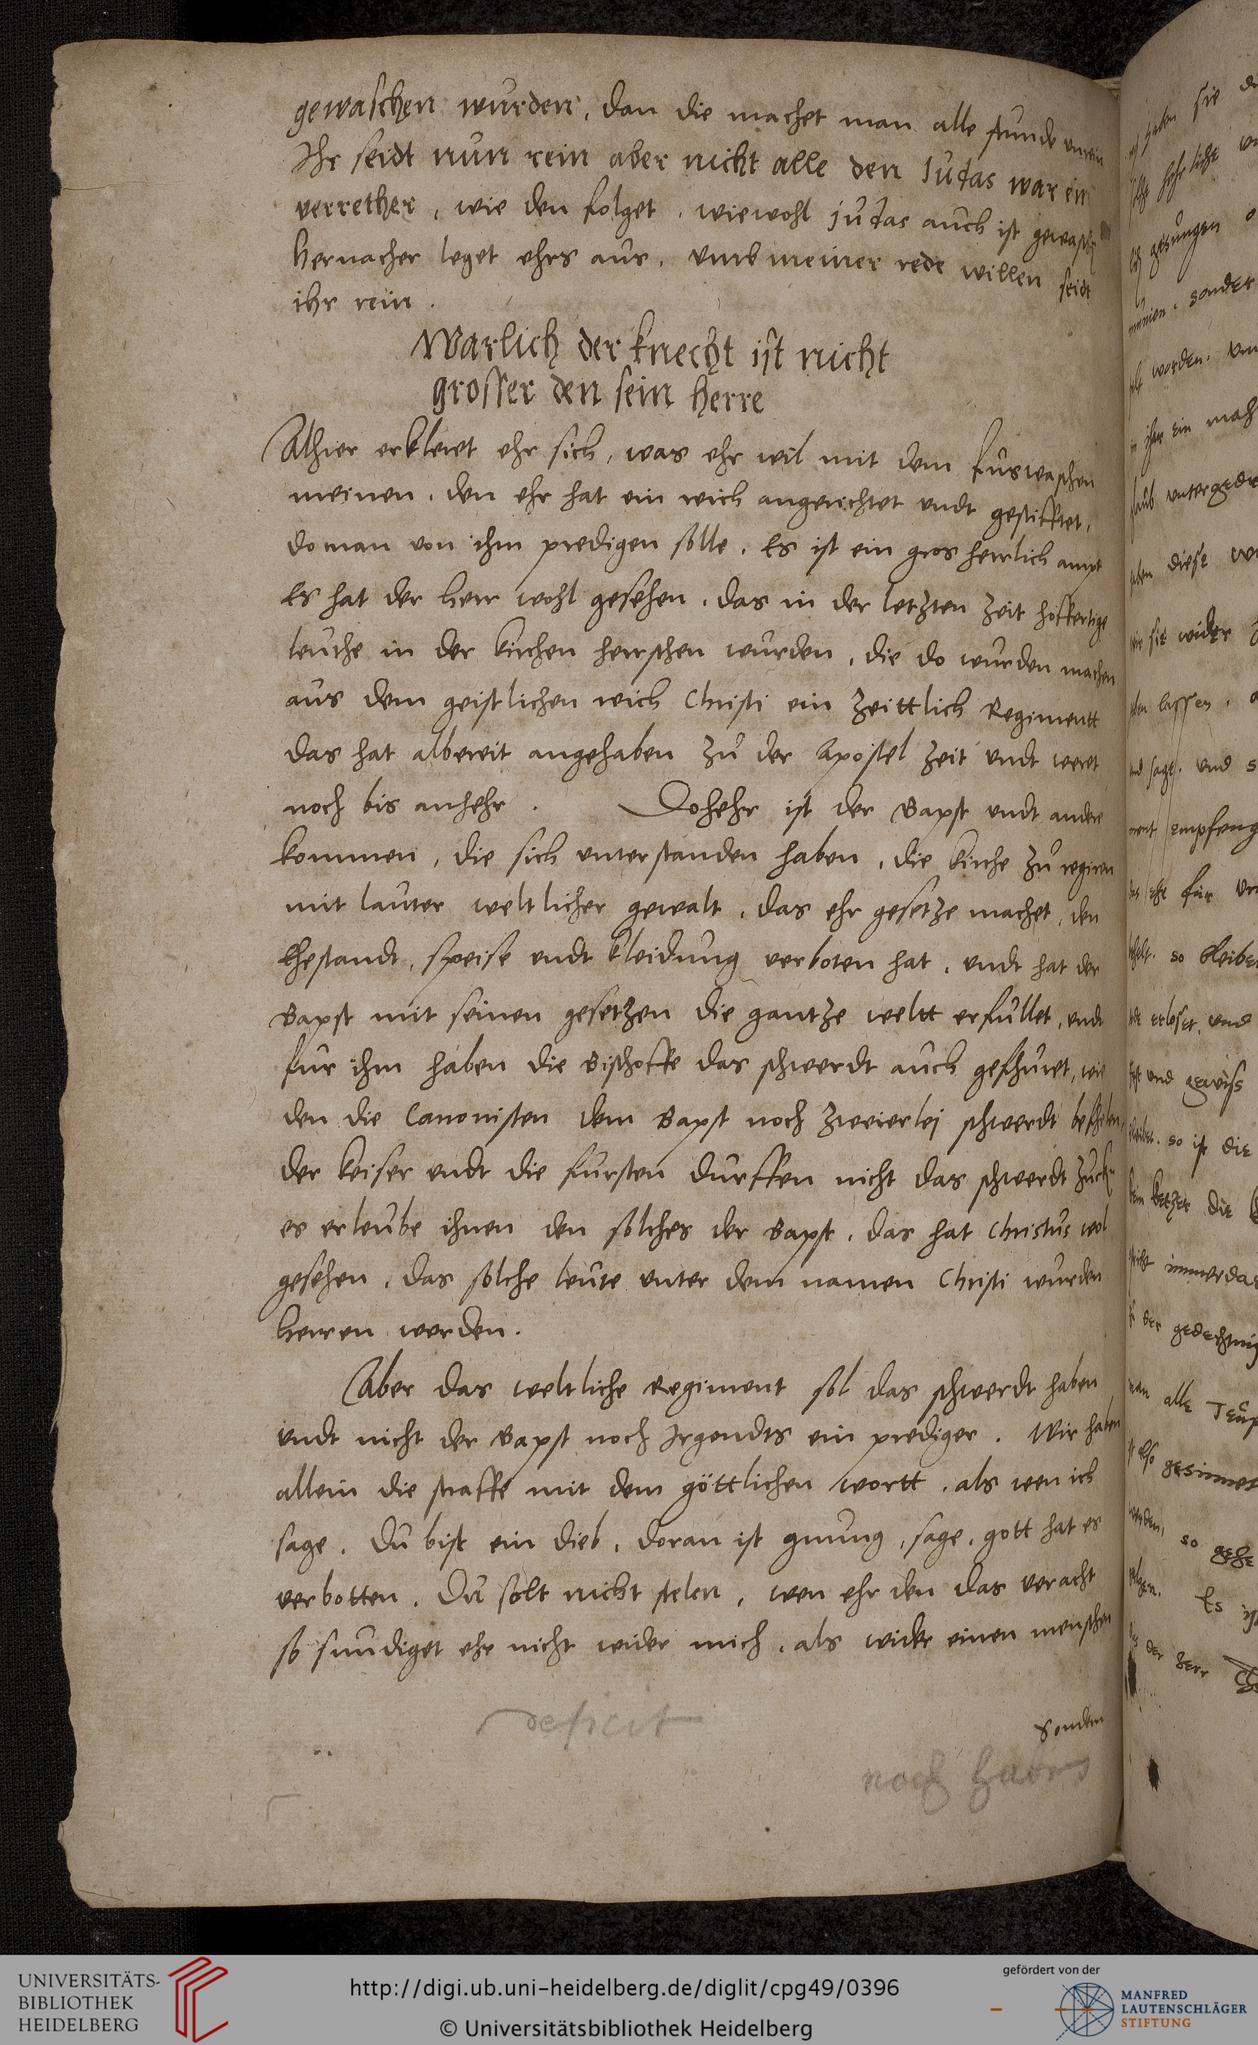 gewaschen wurden, dan die machet man alle stunde unrein
Ihr seidt nun rein aber nicht alle den Judas war ein
verrether, wie den folget. wiewohl judas auch ist gewasch
hernacher leget ehrs aus. umb meiner rede willen seidt
ihr rein.
Warlich der knecht ist nicht
grosser den sein herre
Alhier erkleret ehr sich, was ehr wil mit dem fuswaschen
meinen. den ehr hat ein reich angerichtet undt gestifftet,
do man von ihm predigen solle. Es ist ein gros herrlich ampt
Es hat der herr wohl gesehen. das in der letzten zeit hoffertige
leuthe in der kirchen herschen wurden, die do wurden machen
aus dem geistlichen reich Christi ein zeittlich Regimentt
das hat albereit angehaben zu der Apostel zeit undt weret
noch bis anhehr. Dohehr ist der Bapst undt andere
kommen, die sich unterstanden haben, die kirche zu regiren
mit lauter weltlicher gewalt, das ehr gesetze machet, den
Ehestandt, speise undt kleidung verboten hat, undt hat der
Bapst mit seinen gesetzen die gantze weltt erfullet, undt
fur ihm haben die Bischoffe das schwerdt auch gefhuret, wie
den die Canonisten dem Bapst noch zweierlej schwerdt
der keiser undt die fursten durffen nicht das schwerdt
es erleube ihnen den solches der Bapst. das hat Christus wol
gesehen, das solche leute unter dem namen Christi wurden
herren werden.
Aber das weltliche Regiment sol das schwerdt haben
undt nicht der Bapst noch Irgendts ein prediger. Wir haben
allein die straffe mit dem göttlichen wortt, als wen ich
sage. Du bist ein dieb, doran ist gnung, sage, gott hat es
verbotten. Du solt nicht stelen, wen ehr den das veracht
so sundiget ehr nicht wider mich, als wider einen menschen
Sondern
deficit
noch
UNIVERSITÄTS-
BIBLIOTHEK
HEIDELBERG
http://digi.ub.uni-heidelberg.de/diglit/cpg49/0396
© Universitätsbibliothek Heidelberg
gefördert von der
MANFRED
LAUTENSCHLÄGER
STIFTUNG